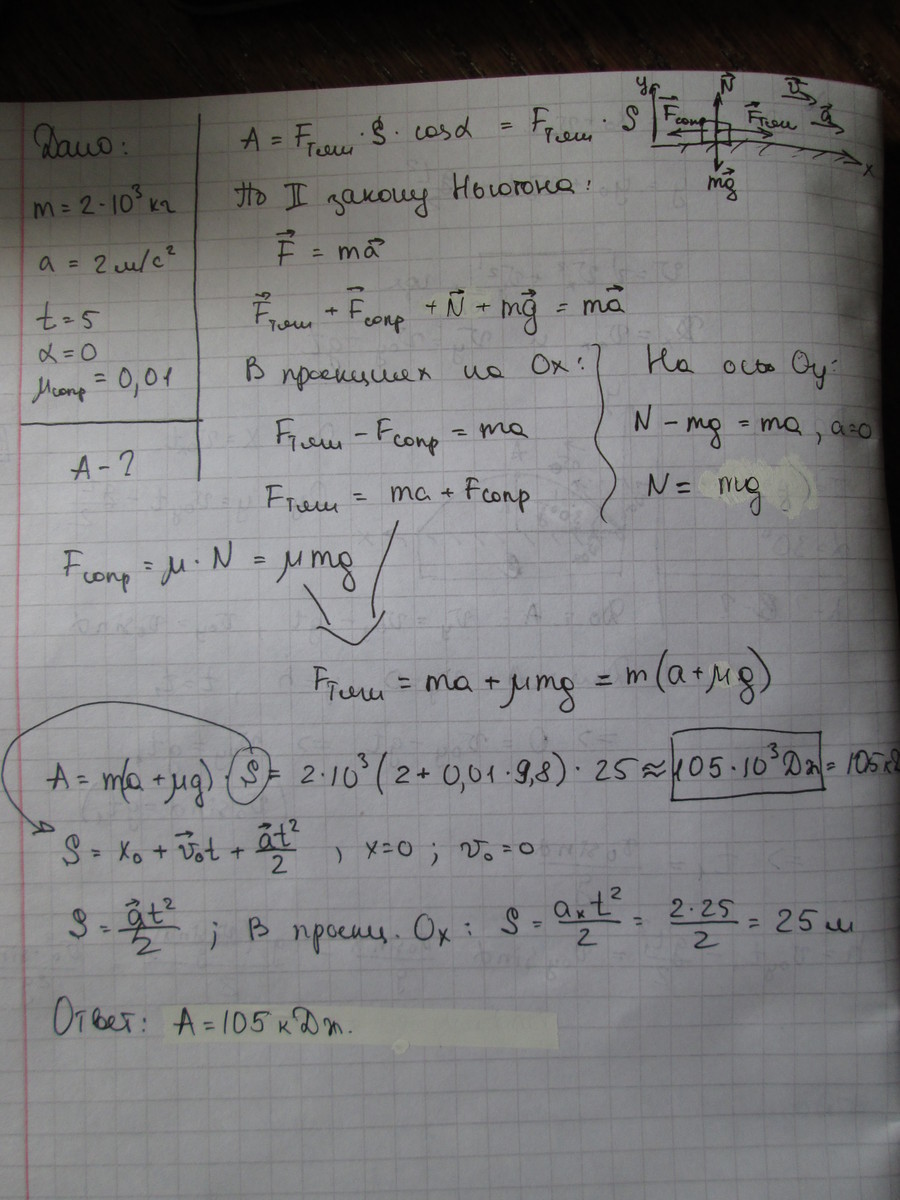 Дано:
m = 2·10³ кг
a = 2 м/с²
t = 5
α = 0
μсопр = 0,01
A - ?
A = Fтяги · S · cosα = Fтяги · S
y N⃗ v⃗ a⃗ F⃗сопр F⃗тяги mg⃗ x
По II закону Ньютона:
F⃗ = ma⃗
F⃗тяги + F⃗сопр + N⃗ + mg⃗ = ma⃗
В проекциях на Ox:
Fтяги - Fсопр = ma
Fтяги = ma + Fсопр
На ось Oy:
N - mg = ma, a=0
N = mg
Fсопр = μ · N = μmg
Fтяги = ma + μmg = m(a + μg)
A = m(a + μg) · S = 2·10³(2 + 0,01·9,8) · 25 ≈ 105·10³ Дж = 105к
S = x₀ + v⃗₀t + a⃗t²/2 , x=0 ; v₀ = 0
S = a⃗t²/2 ; В проекц. Ox: S = aₓt²/2 = 2·25/2 = 25 м
Ответ: A = 105 кДж.